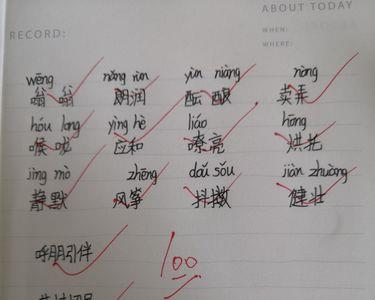 ABOUT TODAY
RECORD:
WHEN:
WHERE:
wēng nǎng rùn yùn niàng nòng
嗡 翁 朗润 酝 酿 卖弄
hóu long yìng hè liáo hōng
喉咙 应和 嘹亮 烘托
jìng mò zhēng dǒu sǒu jiàn zhuàng
静默 风筝 抖擞 健壮
呼朋引伴
100